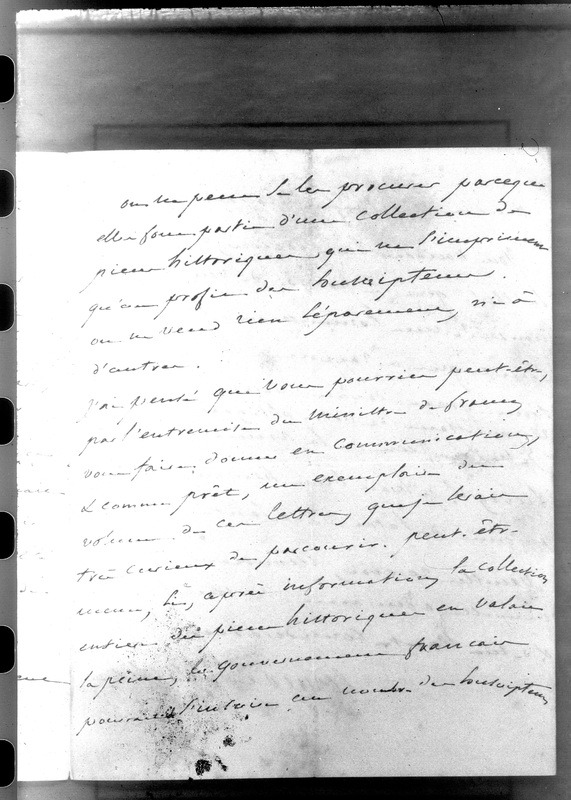 on ne peut se les procurer parceque
elles font partie d'une collection de
pieces historiques qui ne s'impriment
qu'au profit des souscripteurs.
on ne vend rien séparement, ni à
d'autres.
J'ai pensé que vous pourriez peut-être,
par l'entremise du Ministre de france,
vous faire donner en communication,
& comme prêt, un exemplaire du
volume de ces lettres, que je serais
très curieux de parcourir. peut-être
meme, si, après information, la collection
entiere des pieces historiques en valait
la peine, le gouvernement francais
pourrait s'inscrire au nombre des souscripteurs